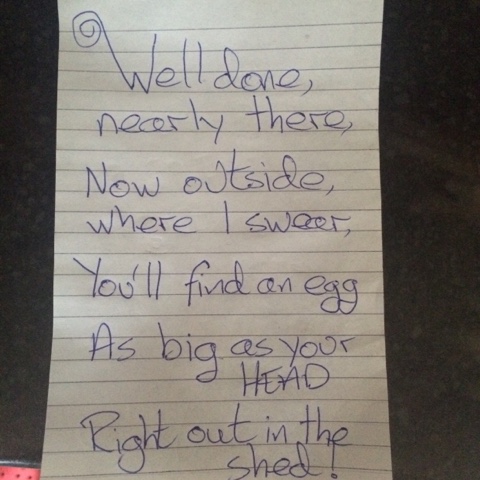 Well done,
nearly there,
Now outside,
where I swear,
You'll find an egg
As big as your
HEAD
Right out in the
shed!